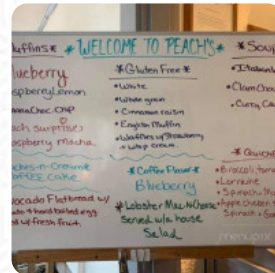 uffins * * WELCOME TO PEACH'S * * Soup
lueberry
spberry Lemon
nana Choc. Chip
ach surprise
aspberry Mocha
ches-n-Cream
offee Cake
vocado Flatbread w/
hard boiled egg
w/ fresh fruit.
* Gluten Free *
• White
• Whole grain
• Cinnamon raisin
• English Muffin
• Waffles w/ Strawberry
+ Whip cream.
* Coffee Flavor *
Blueberry
* Lobster Mac-N-Cheese *
Served w/a house
Salad
• Italian
• Clam Chow
• Curry Ca
* Quiche
• Broccoli, tom
• Lorraine
• Spinach
• Apple chicken
Spinach
menupix